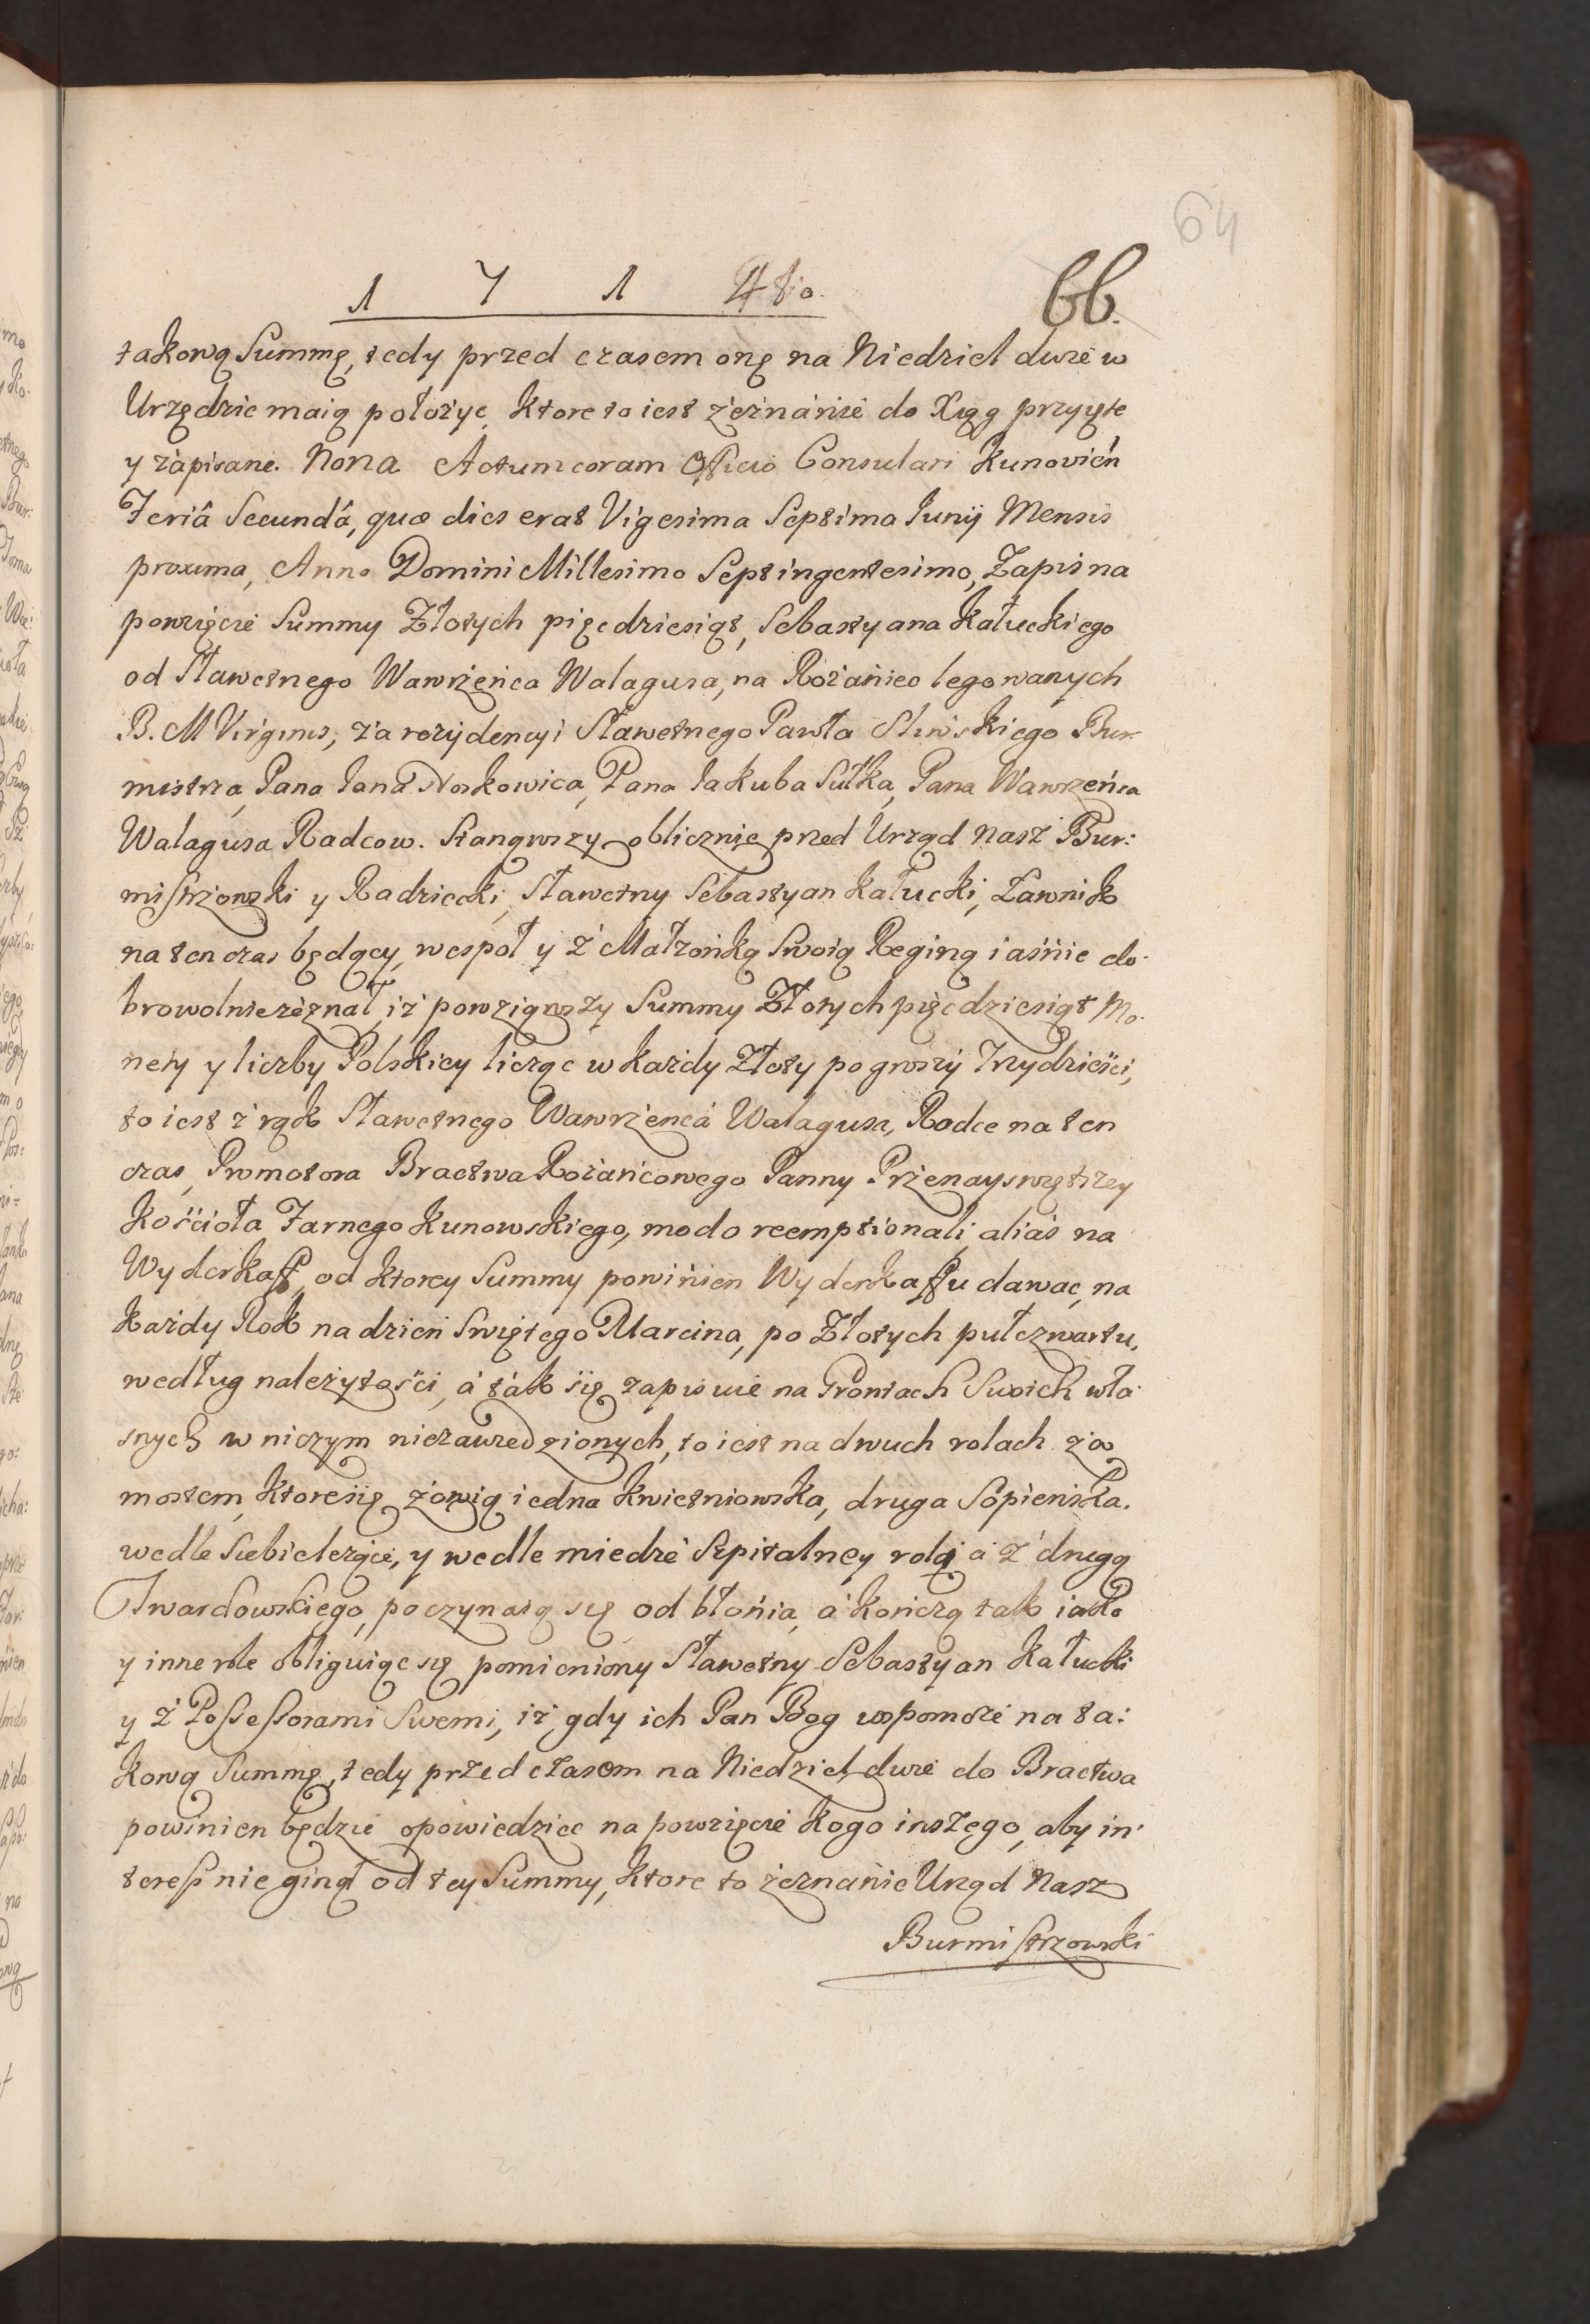 64
1 7 1 4to.
66.
takową Summę, tedy przed czasem onę na Niedziel dwie w
Urzędzie maią położyc, ktore to iest zeznánié do Xiąg przyięte
y zapisane. Nona Actum coram Officio Consulari Kunovień
Feriâ Secundâ, quæ dies erat Vigesima Septima Iunij Mensis
proxima, Anno Domini Millesimo Septingentesimo, Zapis na
powzięcié Summy Złotych pięcdziesiąt, Sebastyana Kałuckiego
od Sławetnego Wawrzeńca Walagusa, na Rożaniec legowanych
B. M Virginis, za rezydencyi Sławetnego Pawła Sliwskiego Bur:
mistrza, Pana Iana Noskowica, Pana Iakuba Sułka, Pana Wawrzeńca
Walagusa Radcow. Stanąwszy oblicznie przed Urząd Nasz Bur:
mistrzowski y Radziecki, Sławetny Sebastyan Kałucki, Ławnik
na ten czas będący, wespoł y z Małżonką Swoią Reginą iaśnie do:
browolnie zeznał, iż powziąwszy Summy Złotych pięcdziesiąt Mo:
nety y liczby Polskiey licząc w każdy Złoty po groszy Trzydzieści,
to iest z rąk Sławetnego Wawrzencá Walagusa, Radce na ten
czas, Promotora Bractwa Rożańcowego Panny Przenayswiętszey
Kościoła Farnego Kunowskiego, modo reemptionali, alias na
Wyderkaff, od ktorey Summy powinien Wyderkaffu dawac, na
każdy Rok na dzień Swiętego Marcina, po Złotych pułczwartu,
według należytości, á ták się zapisuie na Grontach Swoich wła:
snych w niczym niezawiedzionych, to iest na dwuch rolach za
mostem, ktore się zowią iedna Kwietniowska, druga Sopieńska.
wedle Siebie leżące, y wedle miedze Szpitalney roli á z drugą
Twardowskiego, poczynaią się od błonia, á kończą tak iako
y inne role obliguiąc się pomieniony Sławetny Sebastyan Kałucki
y z Possessorami Swemi, iż gdy ich Pan Bog wspomoże na ta:
kową Summę, tedy przed czasem na Niedziel dwie do Bractwa
powinien będzie opowiedziec na powzięcie kogo inszego, aby in:
teress nie ginął od tey Summy, ktore to zeznanie Urząd Nasz
Burmistrzowski